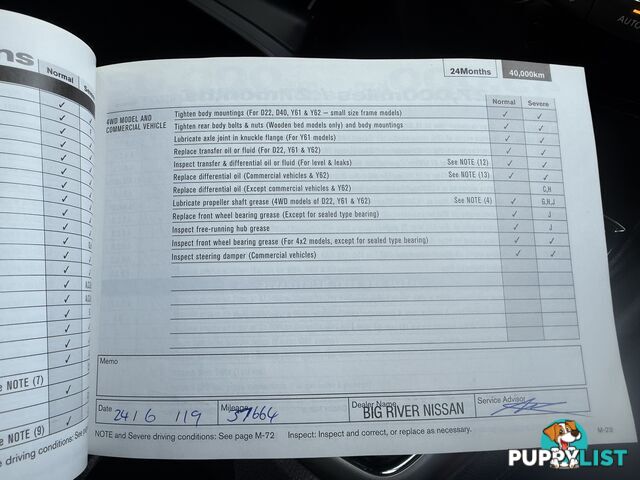 ns
Normal Sev
24Months 40,000km
Normal Severe
4WD MODEL AND
COMMERCIAL VEHICLE
Tighten body mountings (For D22, D40, Y61 & Y62 – small size frame models) ✓ ✓
Tighten rear body bolts & nuts (Wooden bed models only) and body mountings ✓ ✓
Lubricate axle joint in knuckle flange (For Y61 models) ✓ ✓
Replace transfer oil or fluid (For D22, Y61 & Y62) ✓ ✓
Inspect transfer & differential oil or fluid (For level & leaks) See NOTE (12) ✓ ✓
Replace differential oil (Commercial vehicles & Y62) See NOTE (13) ✓ ✓
Replace differential oil (Except commercial vehicles & Y62) C,H
Lubricate propeller shaft grease (4WD models of D22, Y61 & Y62) See NOTE (4) ✓ G,H,J
Replace front wheel bearing grease (Except for sealed type bearing) ✓ J
Inspect free-running hub grease ✓ J
Inspect front wheel bearing grease (For 4x2 models, except for sealed type bearing) ✓ ✓
Inspect steering damper (Commercial vehicles) ✓ ✓
e NOTE (7)
e NOTE (9)
e driving conditions: See
Memo
Date 24/6/19 Mileage 37664 Dealer Name BIG RIVER NISSAN Service Advisor
NOTE and Severe driving conditions: See page M-72 Inspect: Inspect and correct, or replace as necessary.
M-29
PUPPYLIST